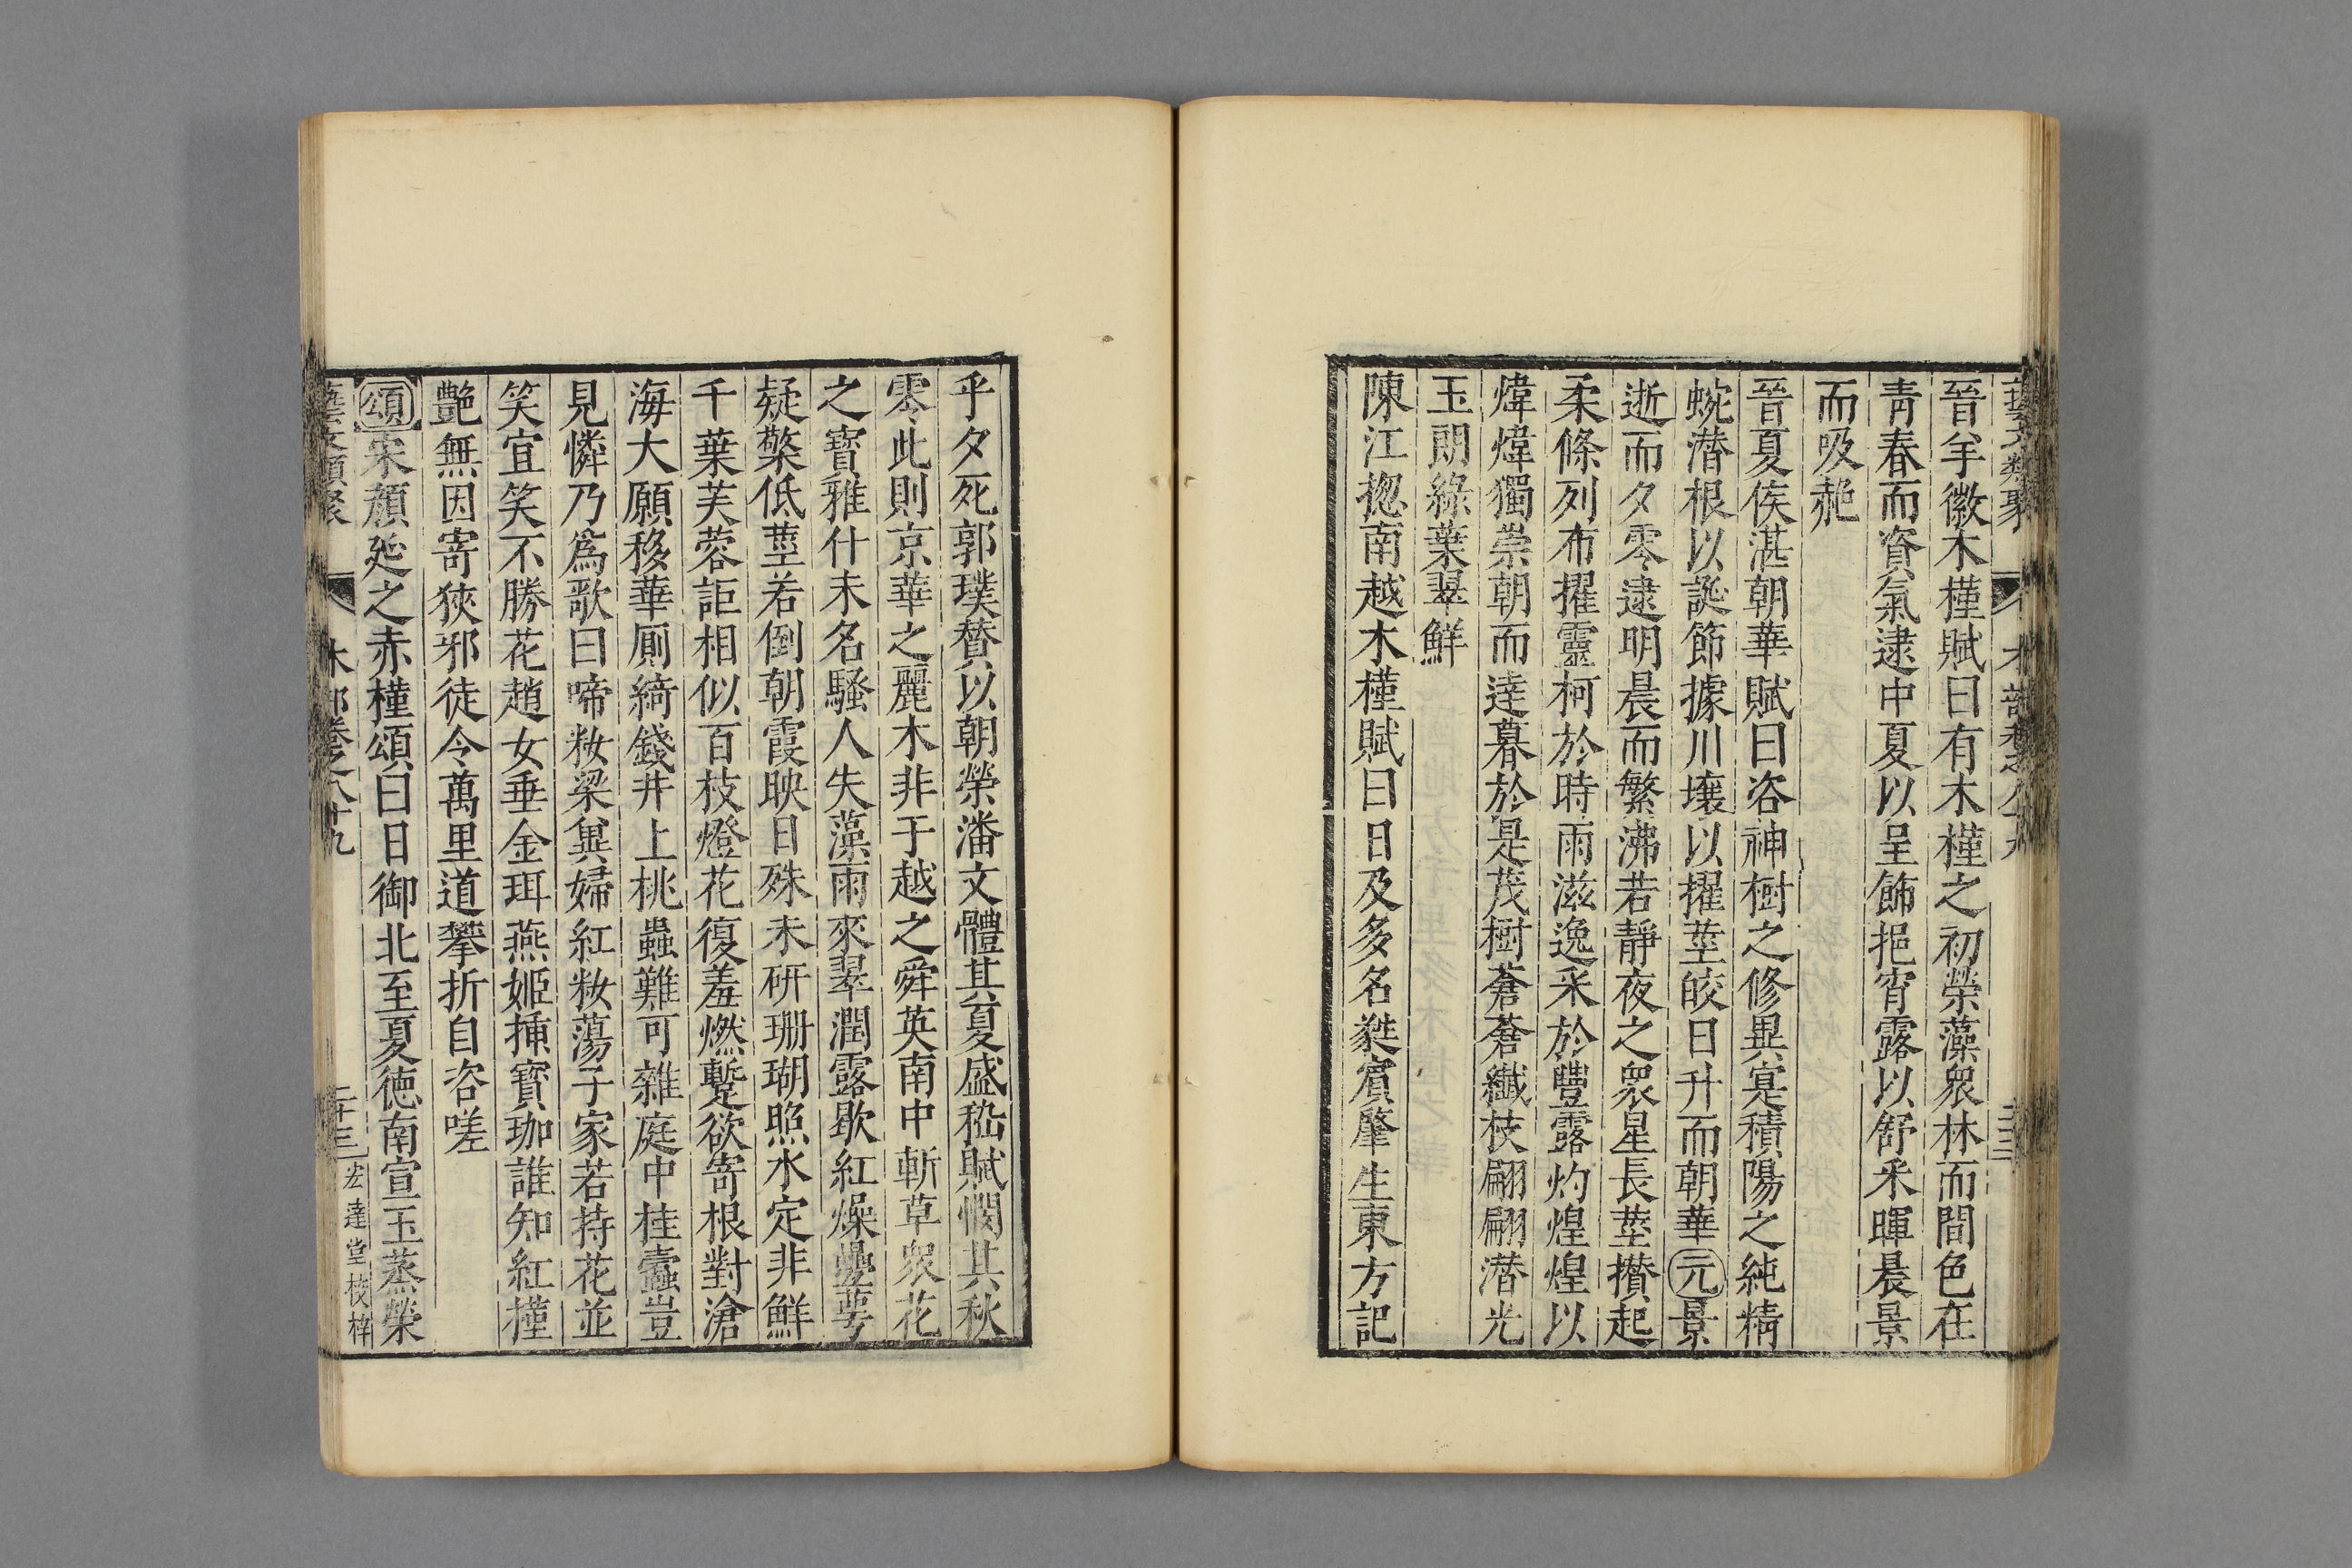 藝文類聚 木部卷之八十九 二十二
晉羊徽木槿賦曰有木槿之初榮藻衆林而間色在
青春而資氣逮中夏以呈飾挹宵露以舒采暉晨景
而吸赩
晉夏侯湛朝華賦曰咨神樹之修異寔積陽之純精
蜿潛根以誕節據川壤以擢莖皎日升而朝華元景
逝而夕零逮明晨而繁沸若靜夜之衆星長莖攢起
柔條列布擢靈柯於時雨滋逸采於豐露灼煌煌以
煒煒獨崇朝而達暮於是茂樹蒼蒼纖枝翩翩潛光
玉朗綠葉翠鮮
陳江揔南越木槿賦曰日及多名蕤賓肇生東方記
乎夕死郭璞贊以朝榮潘文體其夏盛嵇賦憫其秋
零此則京華之麗木非于越之舜英南中斬草衆花
之寶雅什未名騷人失藻雨來翠潤露歇紅燥疊萼
疑檠低莖若倒朝霞映日殊未研珊瑚照水定非鮮
千葉芙蓉詎相似百枝燈花復羞燃蹔欲寄根對滄
海大願移華厠綺錢井上桃蟲難可雜庭中桂蠹豈
見憐乃爲歌曰啼妝梁兾婦紅妝蕩子家若持花並
笑宜笑不勝花趙女垂金珥燕姬揷寳珈誰知紅槿
艶無因寄狹邪徒令萬里道攀折自咨嗟
頌宋顏延之赤槿頌曰日御北至夏德南宣玉蒸榮
藝文類聚 木部卷之八十九 二十三 宏達堂校梓